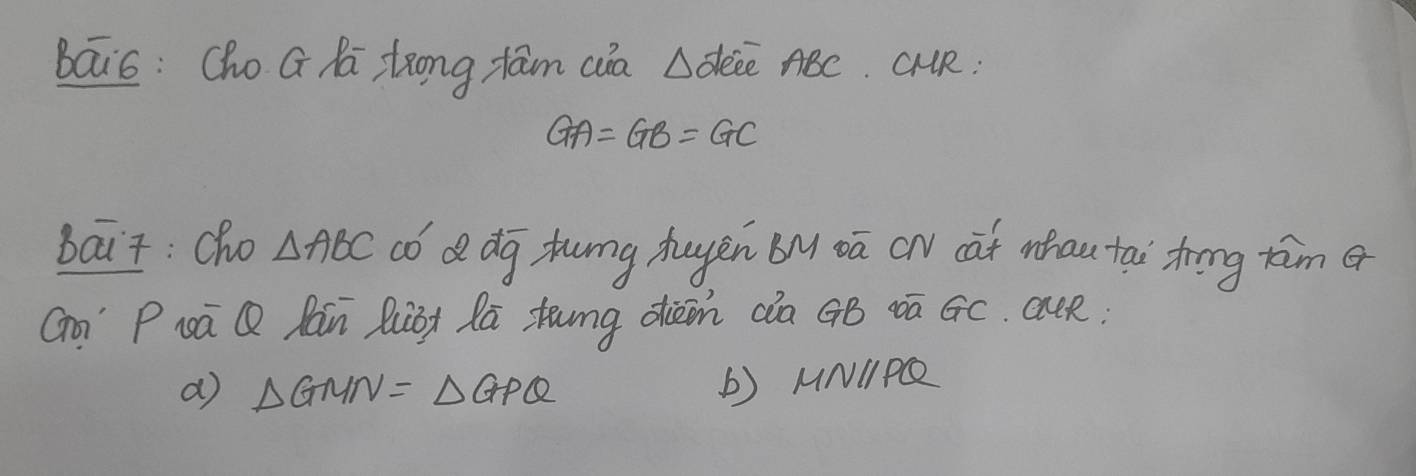 Bài 6: Cho G là trọng tâm của Δ đều ABC. CMR:
GA = GB = GC
Bài 7: Cho ΔABC có 2 đg trung tuyến BM và CN cắt nhau tại trọng tâm G
Gọi P và Q lần lượt là trung điểm của GB và GC. CMR:
a) ΔGMN = ΔGPQ b) MN//PQ